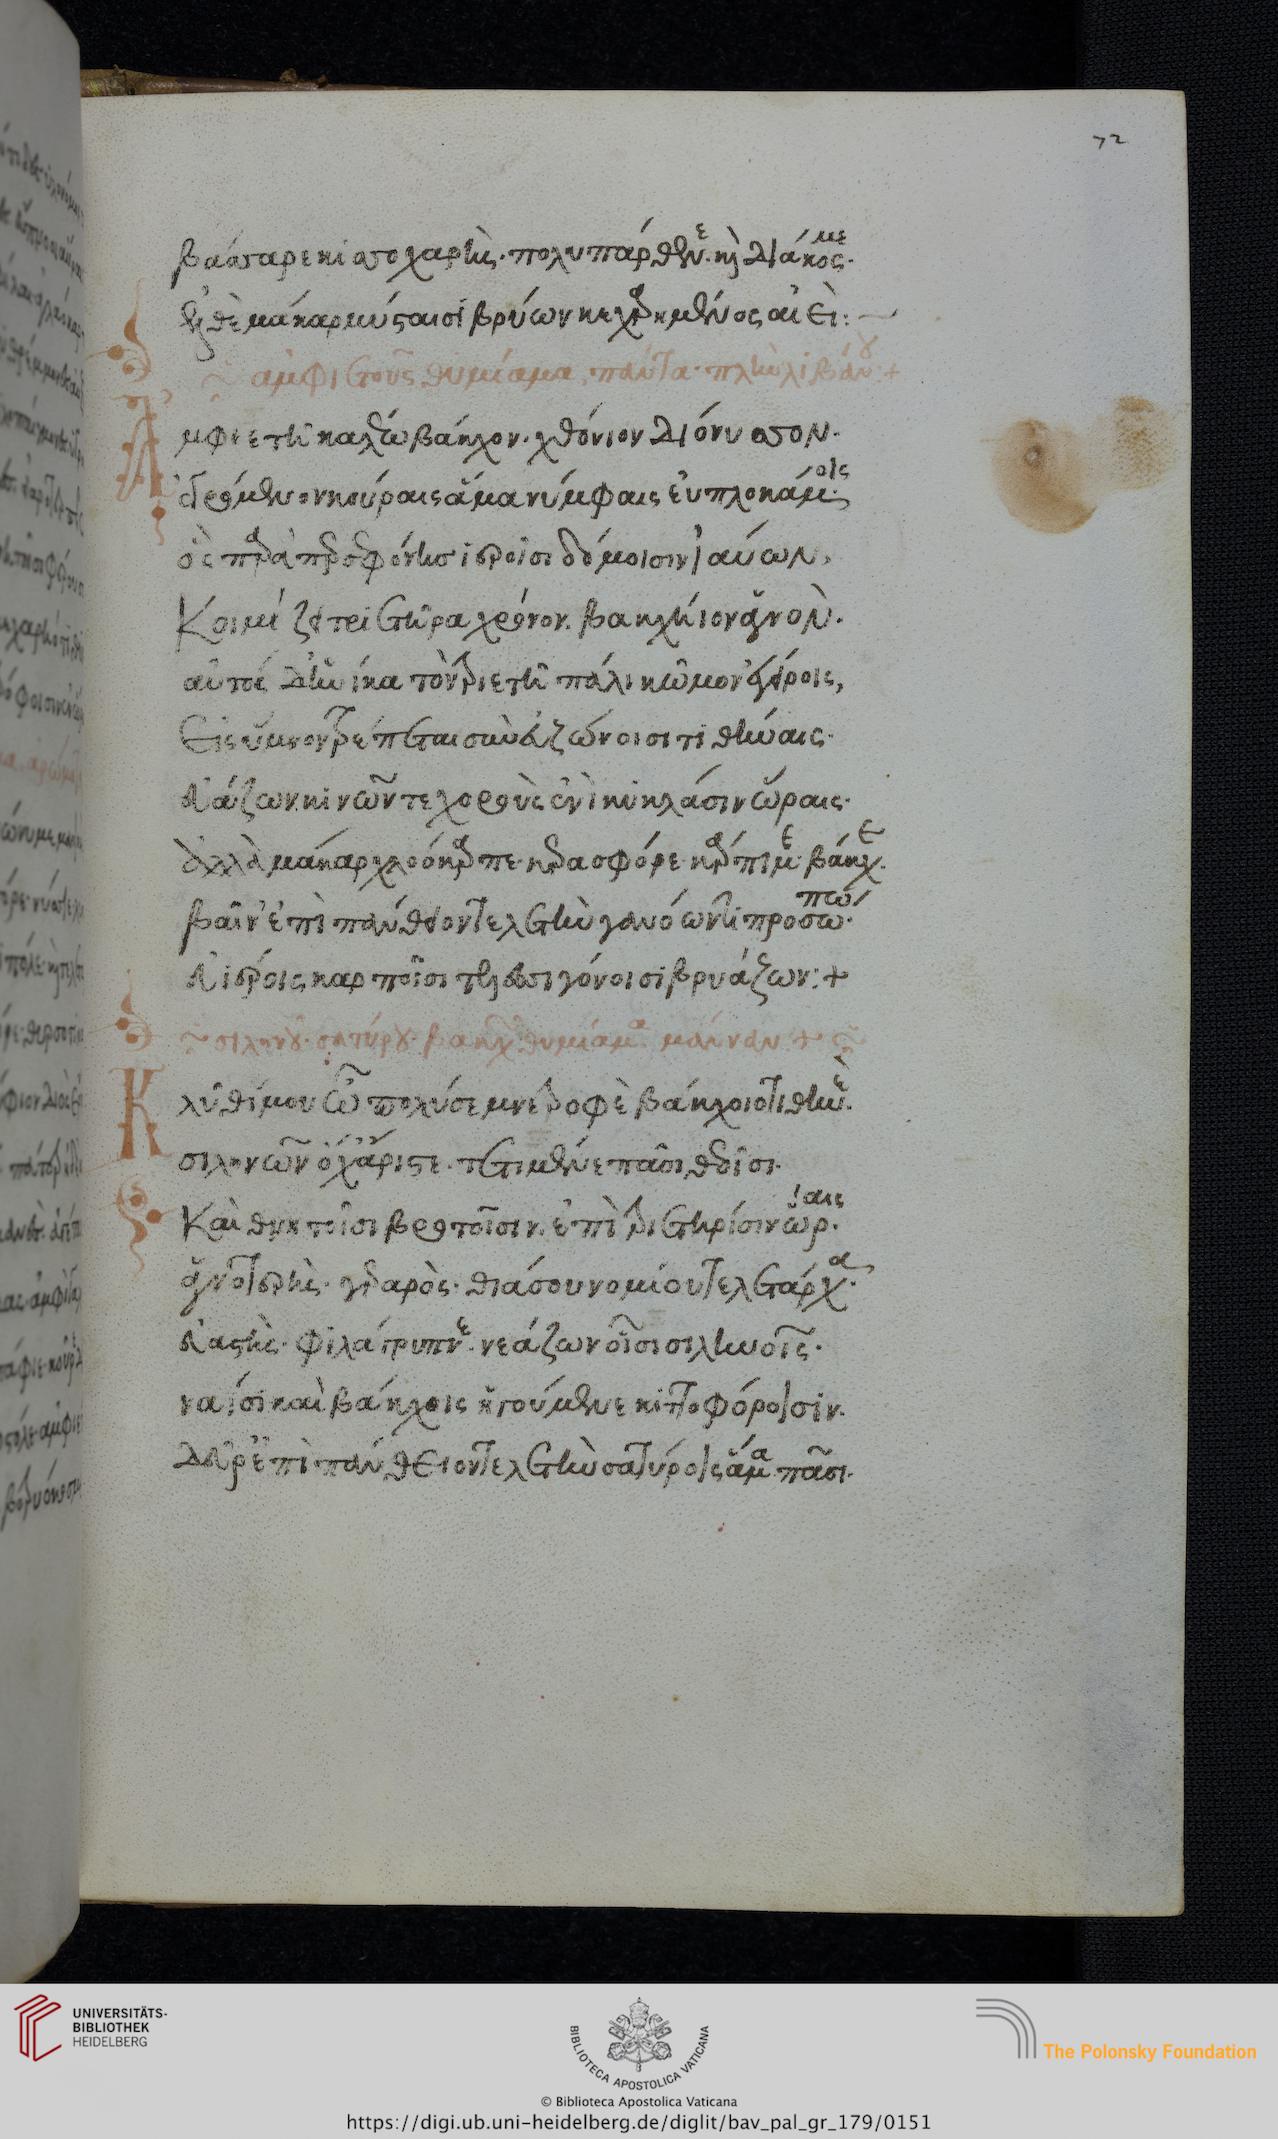 72
βάσσαρε κισσοχαρὴς. πολυπάρθενε. καὶ διάκοσμε.
ἐλθὲ μάκαρ μύσταισι βρύων κεχαρημένος αἰεὶ:
ἀμφιετοῦς θυμίαμα, πάντα. πλὴν λιβάνου: +
Ἀμφιετῆ καλέω βάκχον. χθόνιον διόνυσον.
ἐγρόμενον κούραις ἅμα νύμφαις εὐπλοκάμοις.
ὃς παρὰ περσεφόνης ἱεροῖσι δόμοισιν ἰαύων,
Κοιμίζει τριετῆρα χρόνον. βακχήιον ἁγνὸν.
αὐτὸς δ' ἡνίκα τὸν τριετῆ πάλι κῶμον ἐγείροις,
Εἰς ὕμνον τρέπεται σὺν εὐζώνοισι τιθήναις.
εὐάζων κινῶν τε χοροὺς ἐνὶ κυκλάσιν ὥραις.
ἀλλὰ μάκαρ χλοόκαρπε. κερασφόρε. κάρπιμε βάκχε.
βαῖν' ἐπὶ πάνθειον τελετὴν γανόωντι προσώπω.
εὐιέροις καρποῖσι τελεσσιγόνοισι βρυάζων: +
σιληνοῦ. σατύρου. βακχῶν θυμίαμα. μάνναν +
Κλῦθί μου ὦ πολύσεμνε τροφὲ βάκχοιο τιθηνὲ.
σιληνῶν ὄχ' ἄριστε. τετιμένε πᾶσι θεοῖσι.
Καὶ θνητοῖσι βροτοῖσιν. ἐπὶ τριετηρίσιν ὥραις.
ἁγνοτελὴς. γεραρὸς. θιάσου νομίου τελετάρχα.
εὐαστὴς. φιλάγρυπνε. νεάζων οἷσι σιληνοῖς.
ναΐσι καὶ βάκχοις ἡγούμενε κισσοφόροισιν.
δεῦρ' ἐπὶ πάνθειον τελετὴν σατύροις ἅμα πᾶσι.
UNIVERSITÄTS-
BIBLIOTHEK
HEIDELBERG
BIBLIOTECA APOSTOLICA VATICANA
The Polonsky Foundation
© Biblioteca Apostolica Vaticana
https://digi.ub.uni-heidelberg.de/diglit/bav_pal_gr_179/0151